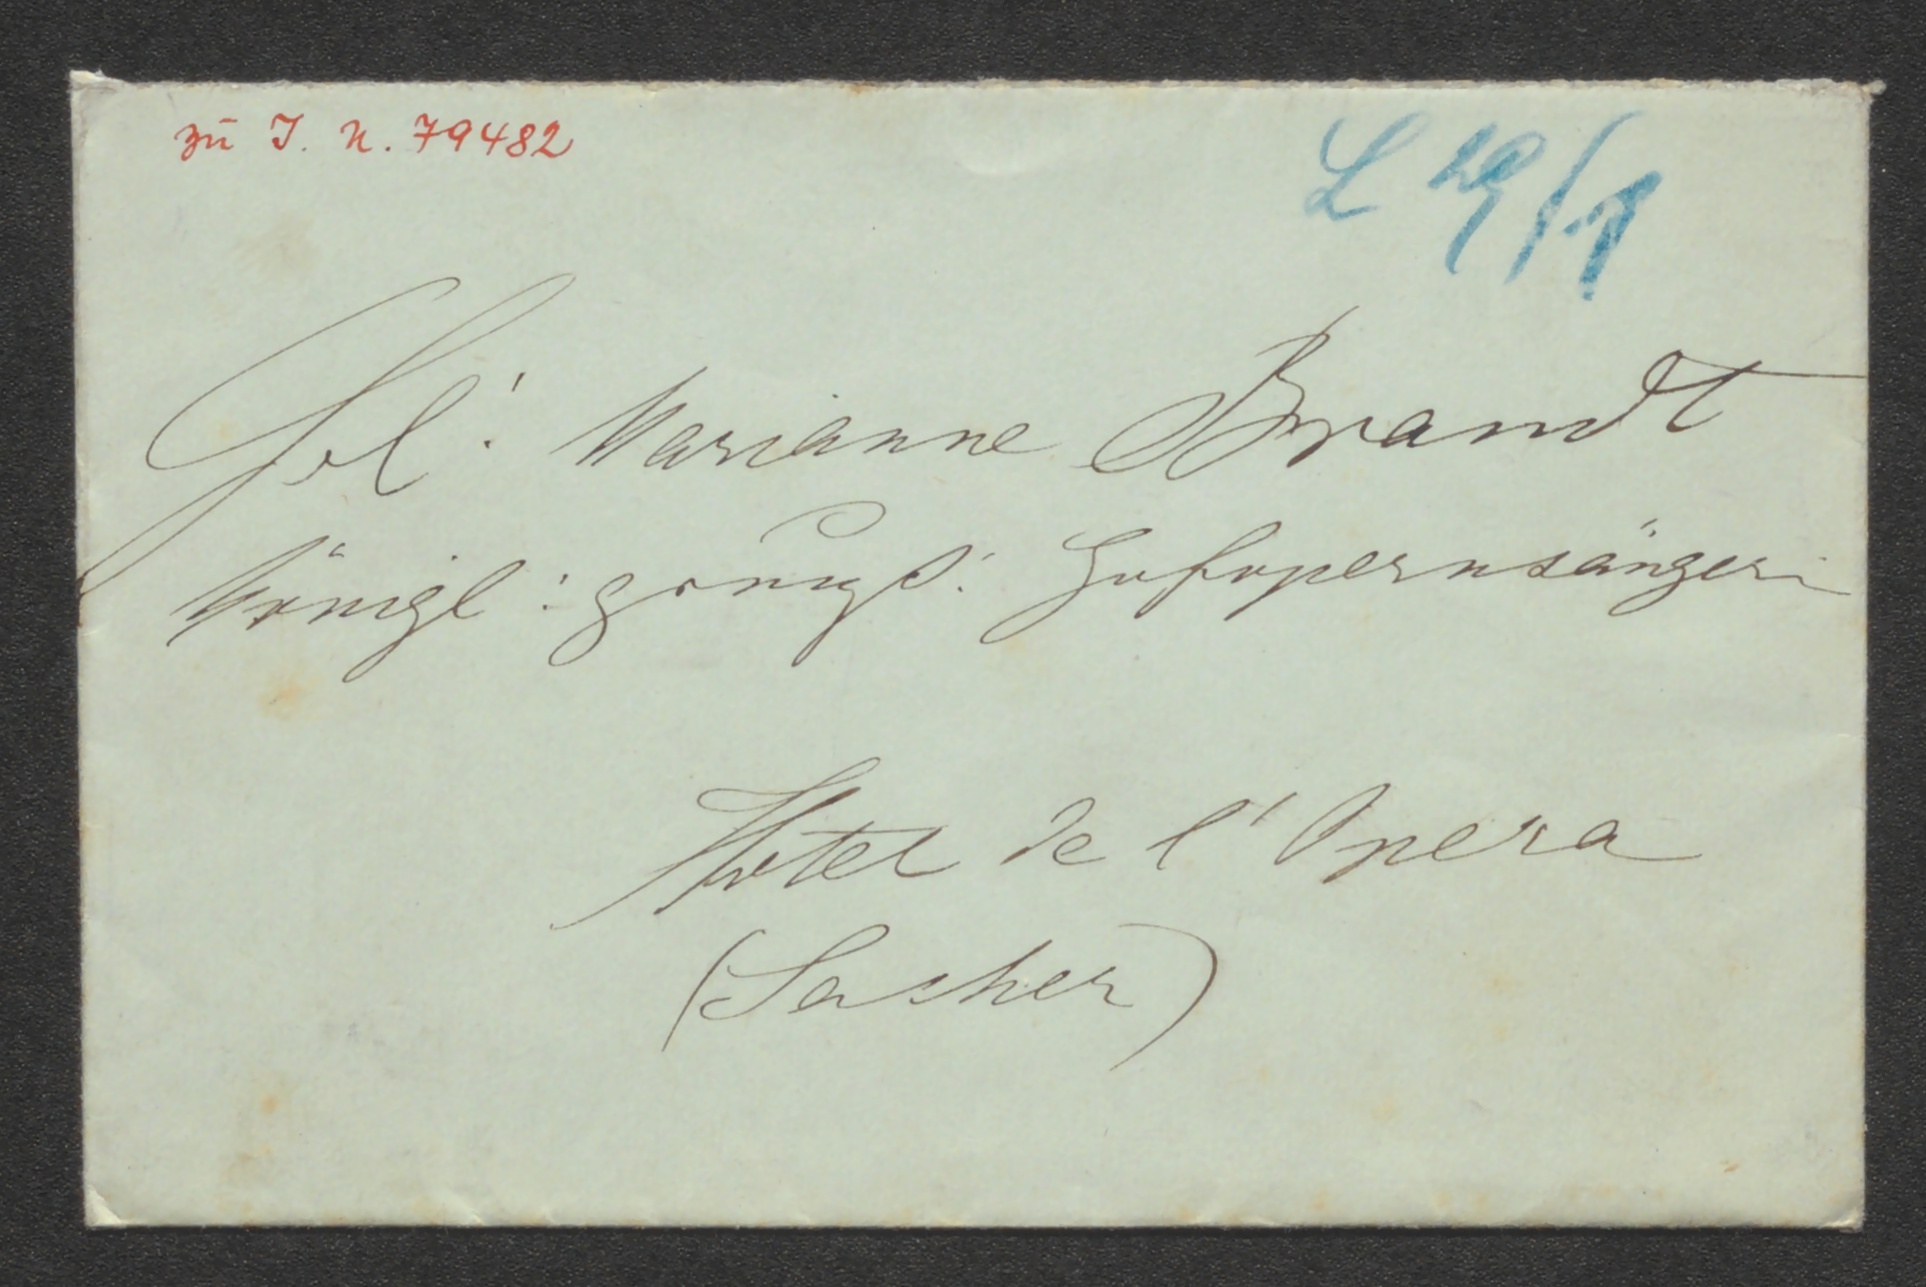 zu I. N. 79482
L 29/1
Frl: Marianne Brandt
Königl: preuß: Hofopernsängerin
Hotel de l'Opera
(Sacher)